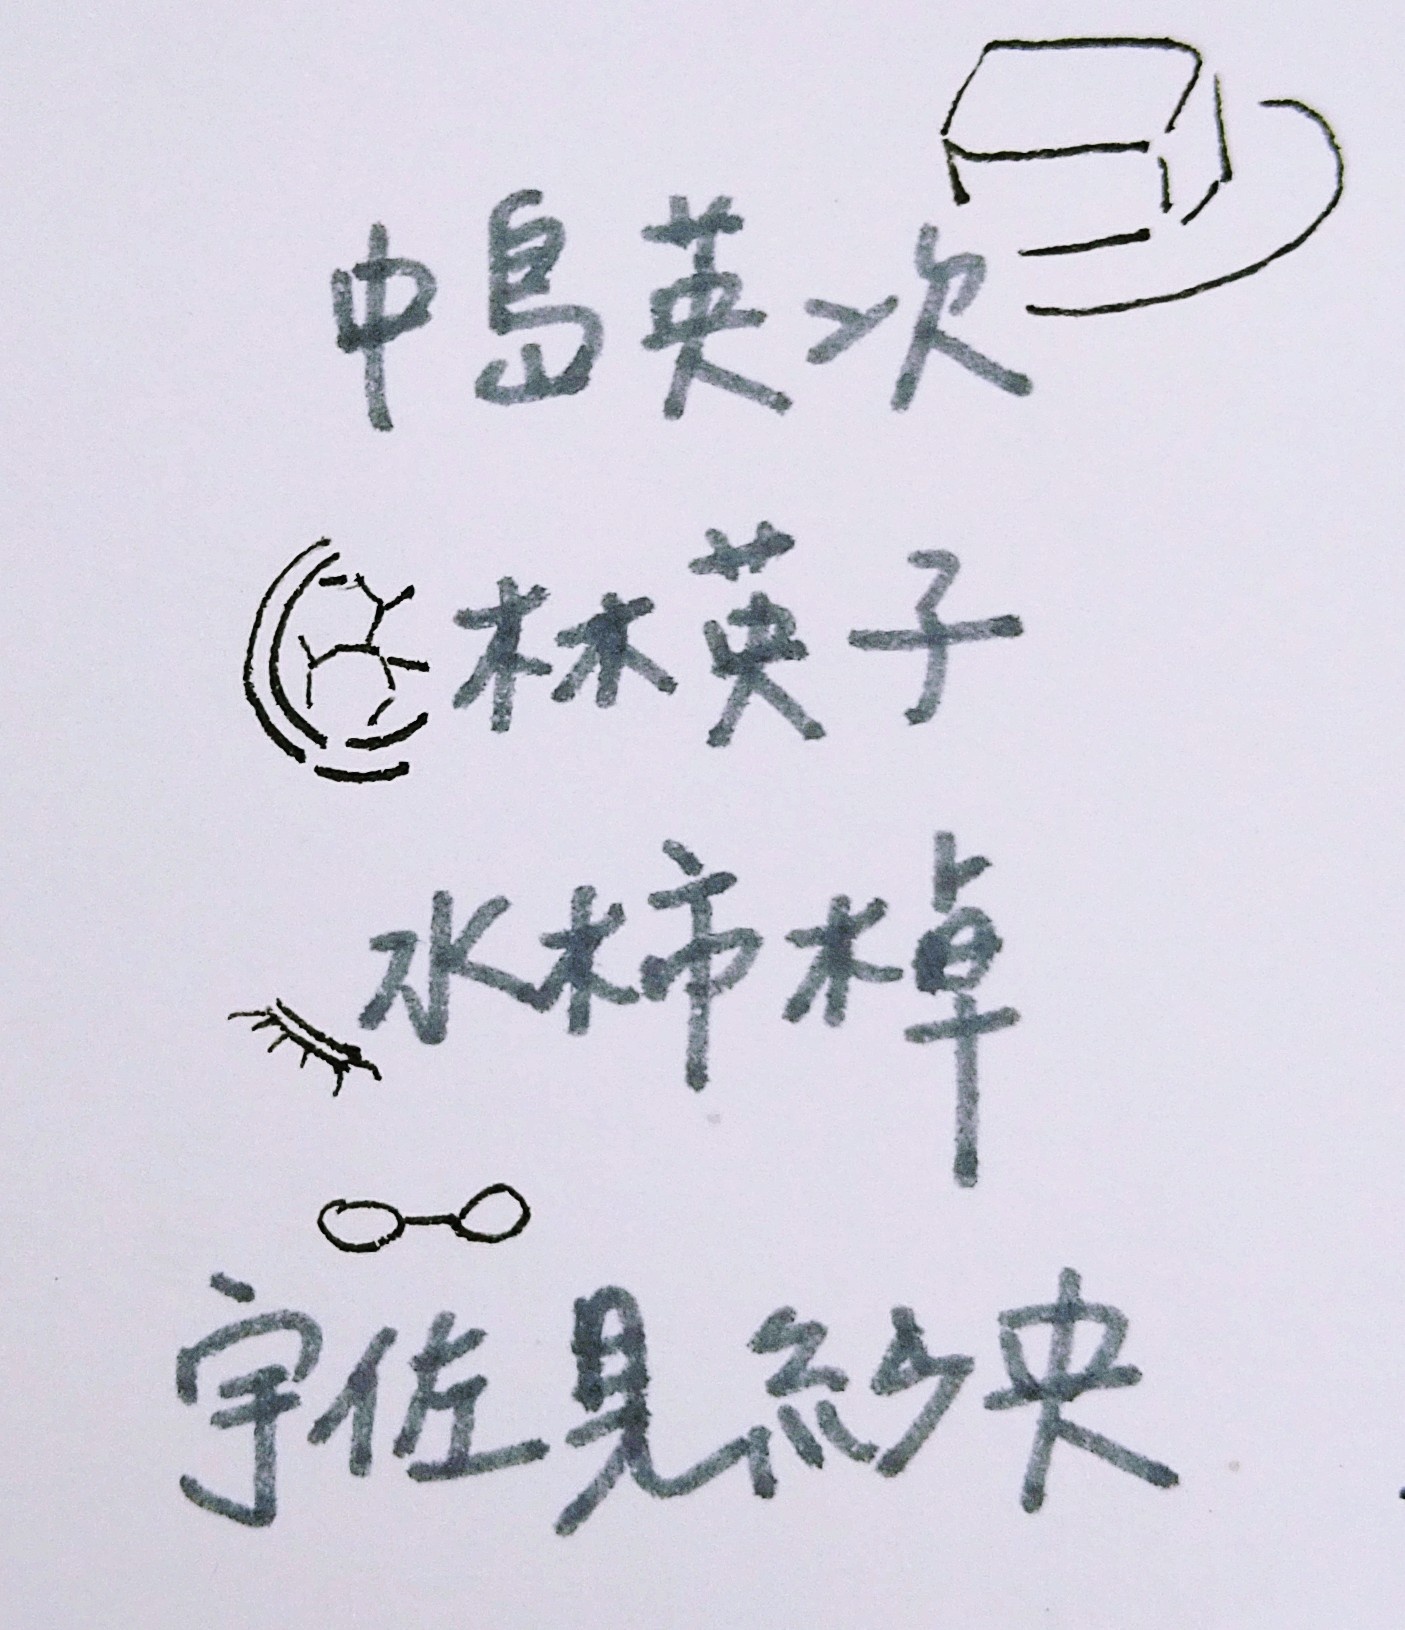 中島英次
林英子
水柿棹
宇佐見紗央